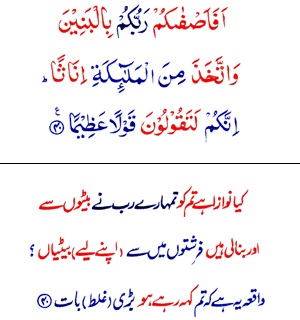 اَفَاَصْفٰىكُمْ رَبُّكُمْ بِالْبَنِيْنَ
وَاتَّخَذَ مِنَ الْمَلٰٓئِكَةِ اِنَاثًا ؕ
اِنَّكُمْ لَتَقُوْلُوْنَ قَوْلًا عَظِيْمًا ﴿۴۰﴾ ع
کیا نوازا ہے تم کو تمہارے رب نے بیٹوں سے
اور بنالی ہیں فرشتوں میں سے (اپنے لیے) بیٹیاں ؟
واقعہ یہ ہے کہ تم کہہ رہے ہو بڑی (غلط) بات ﴿۴۰﴾